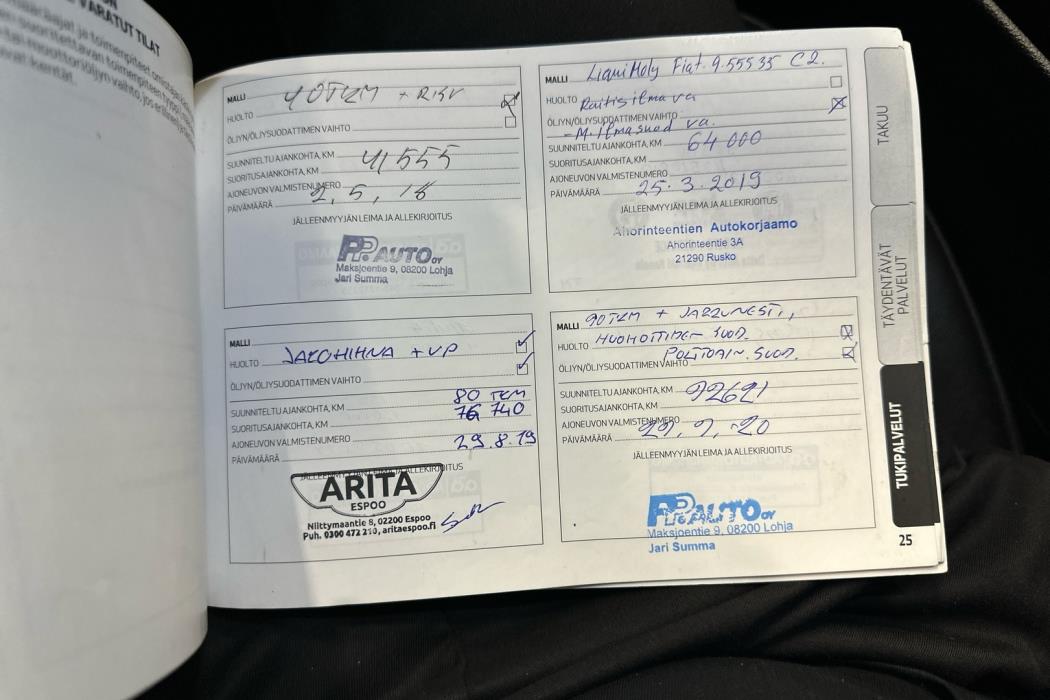 VARATUT TILAT
MALLI 40TKM + RKV
HUOLTO
ÖLJYN/ÖLJYSUODATTIMEN VAIHTO
SUUNNITELTU AJANKOHTA, KM
SUORITUSAJANKOHTA, KM 41555
AJONEUVON VALMISTENUMERO
PÄIVÄMÄÄRÄ 2, 5, 18
JÄLLEENMYYJÄN LEIMA JA ALLEKIRJOITUS
PP. AUTO OY
Maksjoentie 9, 08200 Lohja
Jari Summa
MALLI LiquiMoly Fiat. 9.55535 C2.
HUOLTO Raitisilma va
ÖLJYN/ÖLJYSUODATTIMEN VAIHTO
- M. Ilmasuod va.
SUUNNITELTU AJANKOHTA, KM 64 000
SUORITUSAJANKOHTA, KM
AJONEUVON VALMISTENUMERO
PÄIVÄMÄÄRÄ 25.3.2019
JÄLLEENMYYJÄN LEIMA JA ALLEKIRJOITUS
Ahorinteentien Autokorjaamo
Ahorinteentie 3A
21290 Rusko
MALLI
HUOLTO JAKOHIHNA + VP
ÖLJYN/ÖLJYSUODATTIMEN VAIHTO
SUUNNITELTU AJANKOHTA, KM 80 TKM
SUORITUSAJANKOHTA, KM 76 740
AJONEUVON VALMISTENUMERO
PÄIVÄMÄÄRÄ 29.8.19
JÄLLEENMYYJÄN LEIMA JA ALLEKIRJOITUS
ARITA
ESPOO
Niittymaantie 8, 02200 Espoo
Puh. 0300 472 210, aritaespoo.fi
MALLI 90TKM + JARRUNEST,,
HUOLTO HUONOITIMEN SUOD.
POLTTOAIN. SUOD.
ÖLJYN/ÖLJYSUODATTIMEN VAIHTO
SUUNNITELTU AJANKOHTA, KM
SUORITUSAJANKOHTA, KM 92621
AJONEUVON VALMISTENUMERO
PÄIVÄMÄÄRÄ 29, 9, -20
JÄLLEENMYYJÄN LEIMA JA ALLEKIRJOITUS
PP. AUTO OY
Maksjoentie 9, 08200 Lohja
Jari Summa
TAKUU
TÄYDENTÄVÄT
PALVELUT
TUKIPALVELUT
25